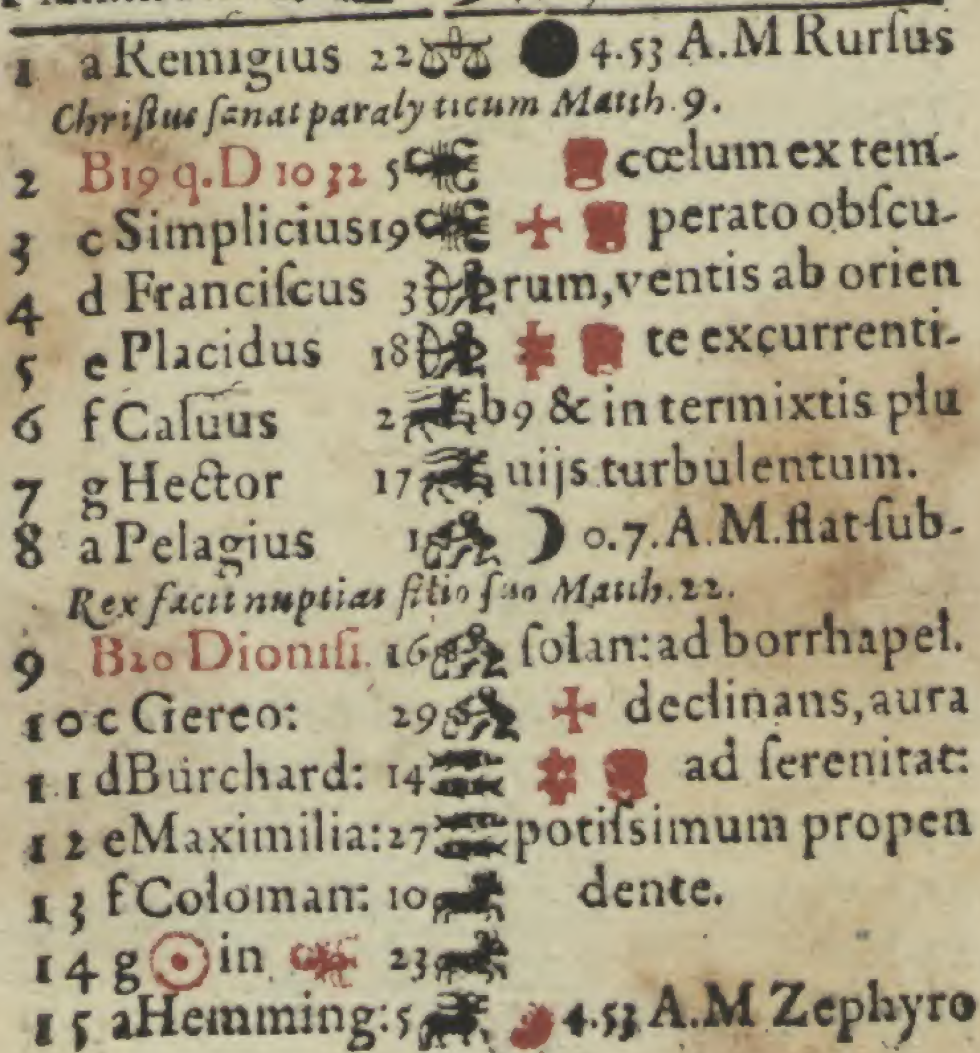 1 a Remigius 22 4.53 A.M Rurſus
Chriſtus ſanat paralyticum Matth. 9.
2 B19 q.D 10 32 5 cœlum ex tem-
3 c Simplicius 19 perato obſcu-
4 d Franciſcus 3 rum, ventis ab orien
5 e Placidus 18 te excurrenti-
6 f Caſuus 2 b9 & in termixtis plu
7 g Hector 17 uijs turbulentum.
8 a Pelagius 1 ☽ 0.7. A.M. flat ſub-
Rex facit nuptias filio ſuo Matth. 22.
9 B20 Dioniſi. 16 ſolan: ad borrhapel.
10 c Gereo: 29 declinans, aura
11 d Burchard: 14 ad ſerenitat:
12 e Maximilia: 27 potiſsimum propen
13 f Coloman: 10 dente.
14 g ☉ in 23
15 a Hemming: 5 4.53 A.M Zephyro